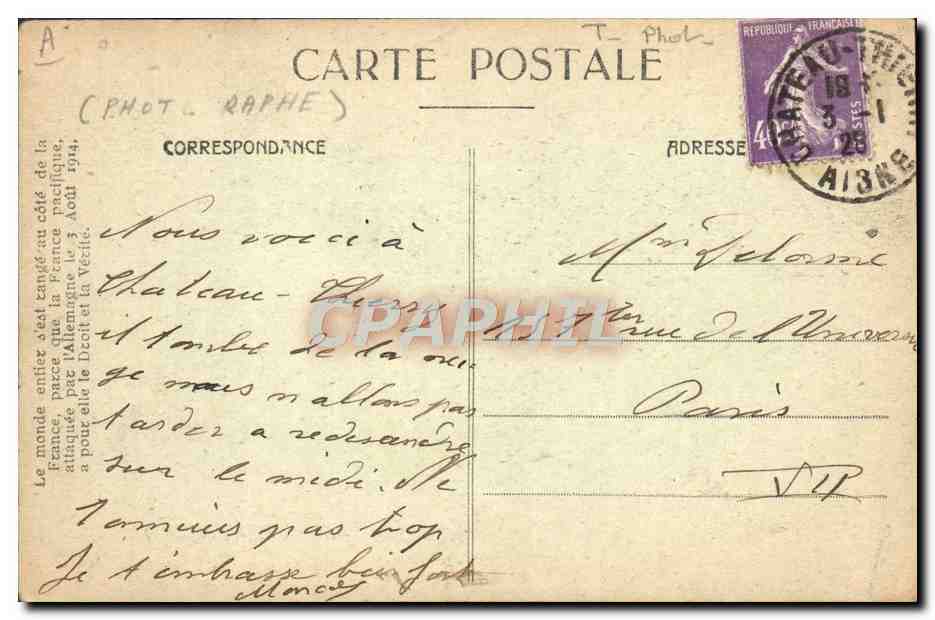 A
T- Phot-
CARTE POSTALE
(PHOT. RAPHE)
CORRESPONDANCE
ADRESSE
RÉPUBLIQUE FRANÇAISE
40
POSTES
CHATEAU-THIERRY
AISNE
18
3 - 1
Le monde entier s'est rangé au côté de la
France, parce que la France pacifique,
attaquée par l'Allemagne le 3 Août 1914,
a pour elle le Droit et la Vérité.
Nous voici à
Chateau-Thierry
il tombe de la nei
ge nous n'allons pas
tarder a redescendre
sur le midi. Ne
t'ennuies pas trop
Je t'embrasse bien fort
Mme Delorme
rue de l'Université
Paris
VII
CPAPHIL